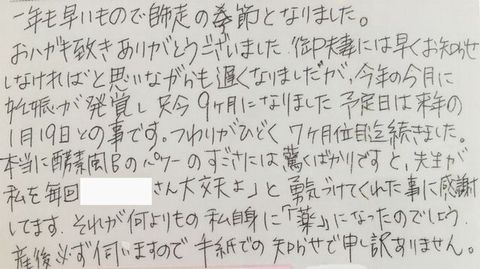 一年も早いもので師走の季節となりました。
おハガキ致きありがとうございました 御夫妻には早くお知らせ
しなければと思いながらも遅くなりましたが、今年の今月に
妊娠が発覚し只今9ヶ月になりました 予定日は来年の
1月19日との事です。つわりがひどく 7ヶ月位迄続きました。
本当に酵素風呂のパワーのすごさには驚くばかりですと、先生が
私を毎回 さん大丈夫よ」と勇気づけてくれた事に感謝
してます. それが何よりもの私自身に「薬」になったのでしょう.
産後必ず伺いますので 手紙での知らせで申し訳ありません。